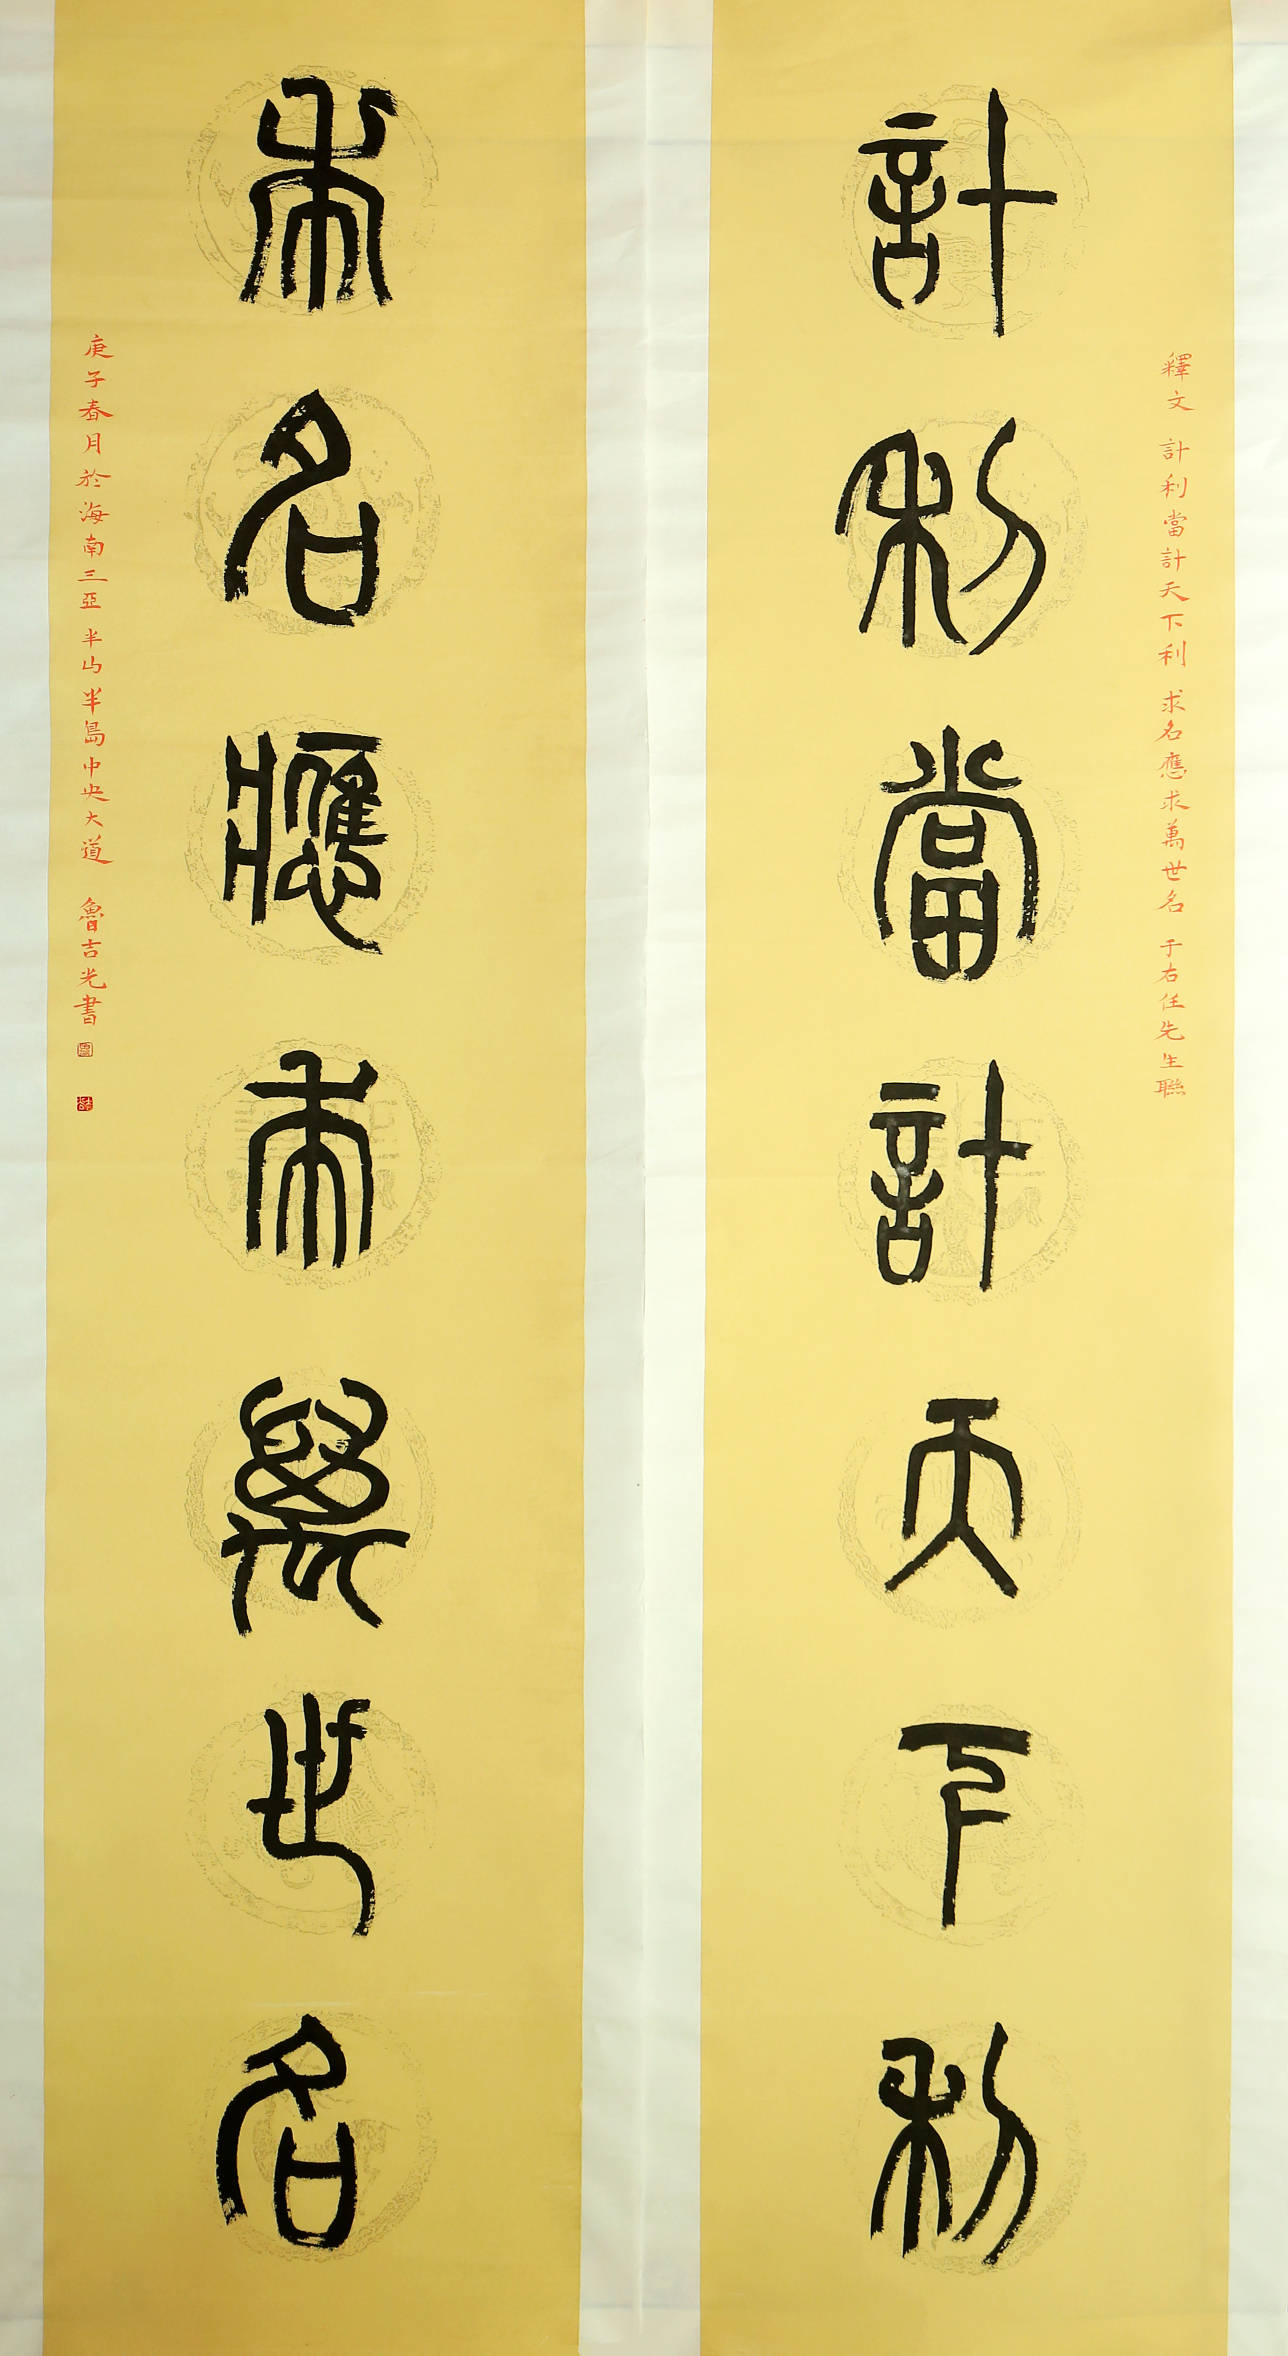 計利當計天下利
釋文 計利當計天下利 求名應求萬世名 于右任先生聯
求名應求萬世名
庚子春月於海南三亞半山半島中央大道 魯吉光書